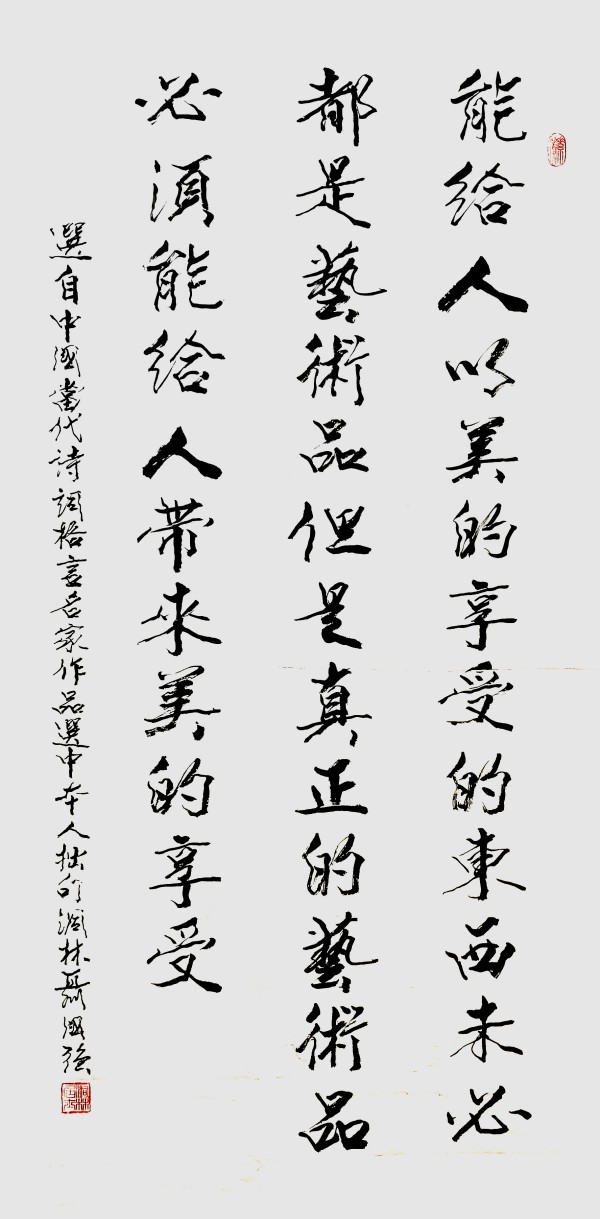 能給人以美的享受的東西未必
都是藝術品但是真正的藝術品
必須能給人帶來美的享受
選自中國當代詩詞格言名家作品選中本人拙作澗林聶國強